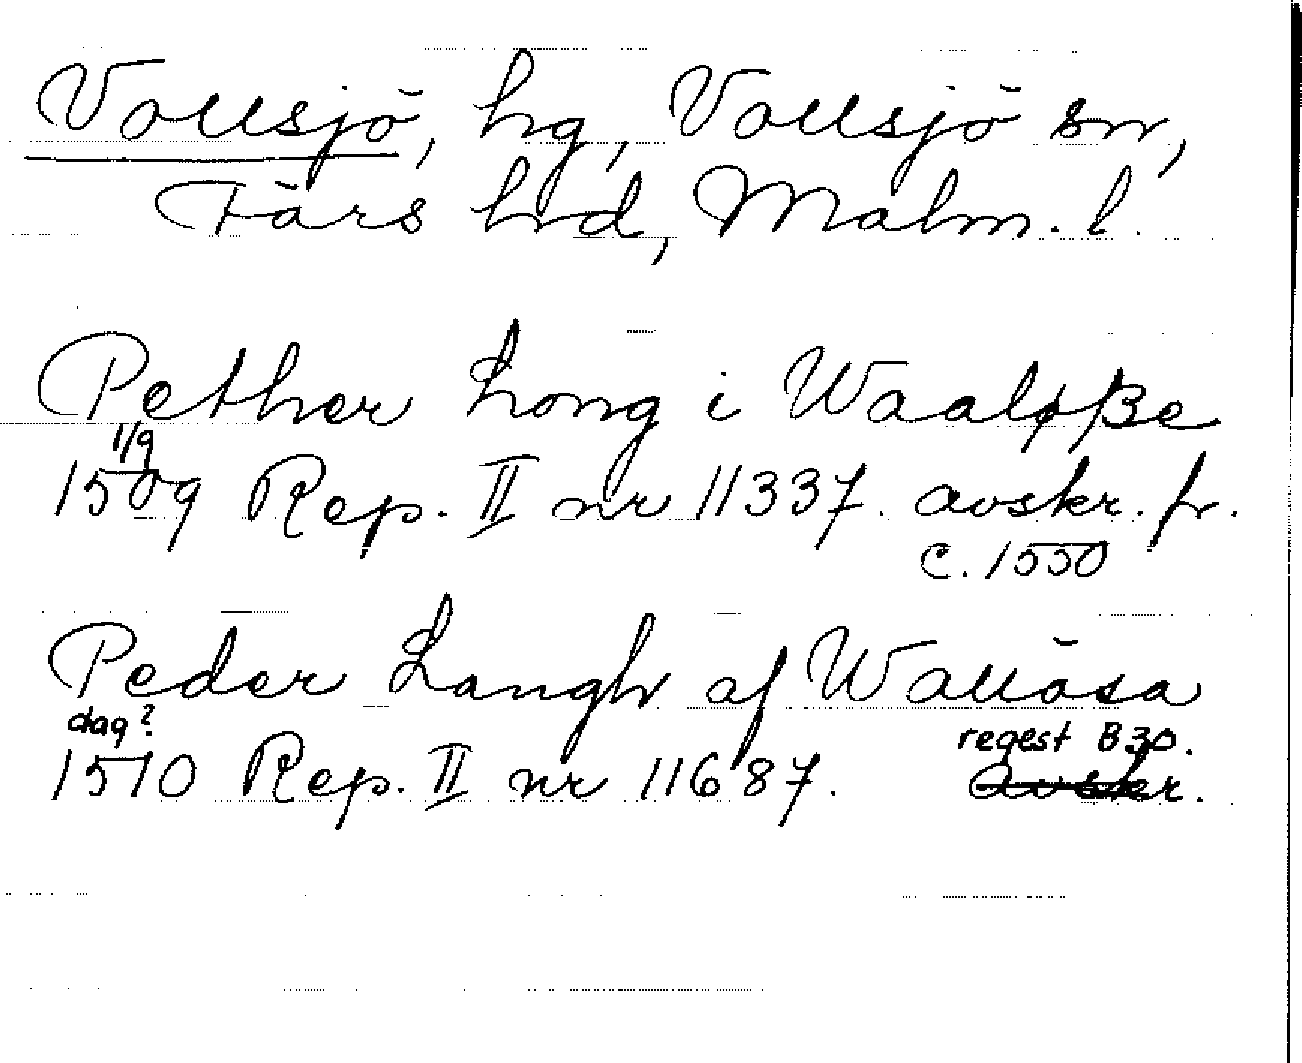 Vollsjö, hg, Vollsjö sn,
Färs hrd, Malm. l.
Pether Long i Waaløsze
1/9
1509 Rep. II nr 11337. avskr. fr.
c. 1550
Peder Langh af Wallösa
dag? regest B 30.
1510 Rep. II nr 11687. avskr.